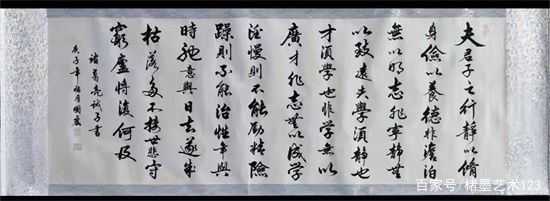 夫君子之行靜以脩
身儉以養德非澹泊
無以明志非寧靜無
以致遠夫學須靜也
才須學也非學無以
廣才非志無以成学
淫慢則不能勵精險
躁則不能治性年與
時馳意與日去遂成
枯落多不接世悲守
窮廬將復何及
諸葛亮誡子書
庚子年
百家号/楮墨艺术123